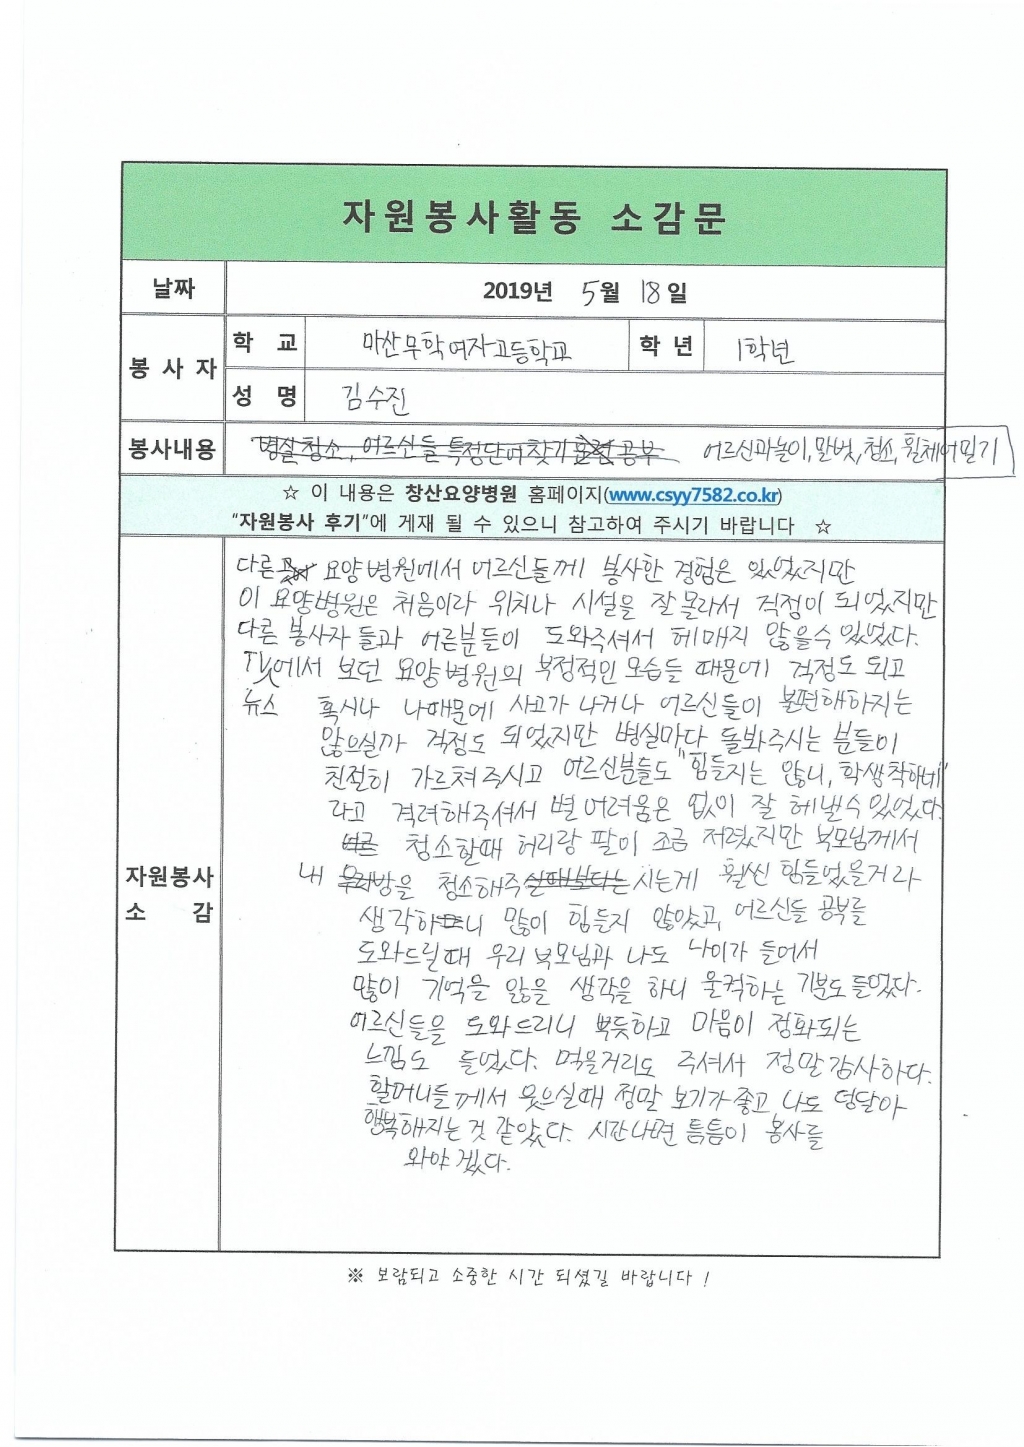 자원봉사활동 소감문
날짜 2019년 5월 18일
봉사자 학교 마산무학여자고등학교 학년 1학년
성명 김수진
봉사내용 병실청소, 어르신들 특정단어찾기 훈련 공부 어르신과놀이, 말벗, 청소, 휠체어밀기
☆ 이 내용은 창산요양병원 홈페이지(www.csyy7582.co.kr)
"자원봉사 후기"에 게재 될 수 있으니 참고하여 주시기 바랍니다 ☆
자원봉사 소감
다른 요양병원에서 어르신들께 봉사한 경험은 있었지만
이 요양병원은 처음이라 위치나 시설을 잘몰라서 걱정이 되었지만
다른 봉사자 들과 어른분들이 도와주셔서 헤매지 않을수 있었다.
TV에서 보던 요양병원의 부정적인 모습들 때문에 걱정도 되고
뉴스 혹시나 나때문에 사고가 나거나 어르신들이 불편해하지는
않으실까 걱정도 되었지만 병실마다 돌봐주시는 분들이
친절히 가르쳐주시고 어르신분들도 "힘들지는 않니, 학생착하네"
라고 격려해주셔서 별 어려움은 없이 잘 헤낼수 있었다.
어른 청소할때 허리랑 팔이 조금 저렸지만 부모님께서
내 우리방을 청소해주실때보다는 시는게 훨씬 힘들었을거라
생각하니 많이 힘든지 않았고, 어르신들 공부를
도와드릴때 우리 부모님과 나도 나이가 들어서
많이 기억을 잃을 생각을 하니 울컥하는 기분도 들었다.
어르신들을 도와드리니 뿌듯하고 마음이 정화되는
느낌도 들었다. 먹을거리도 주셔서 정말감사하다.
할머니들께서 웃으실때 정말 보기가좋고 나도 덩달아
행복해지는것 같았다. 시간나면 틈틈이 봉사를
와야겠다.
※ 보람되고 소중한 시간 되셨길 바랍니다 !